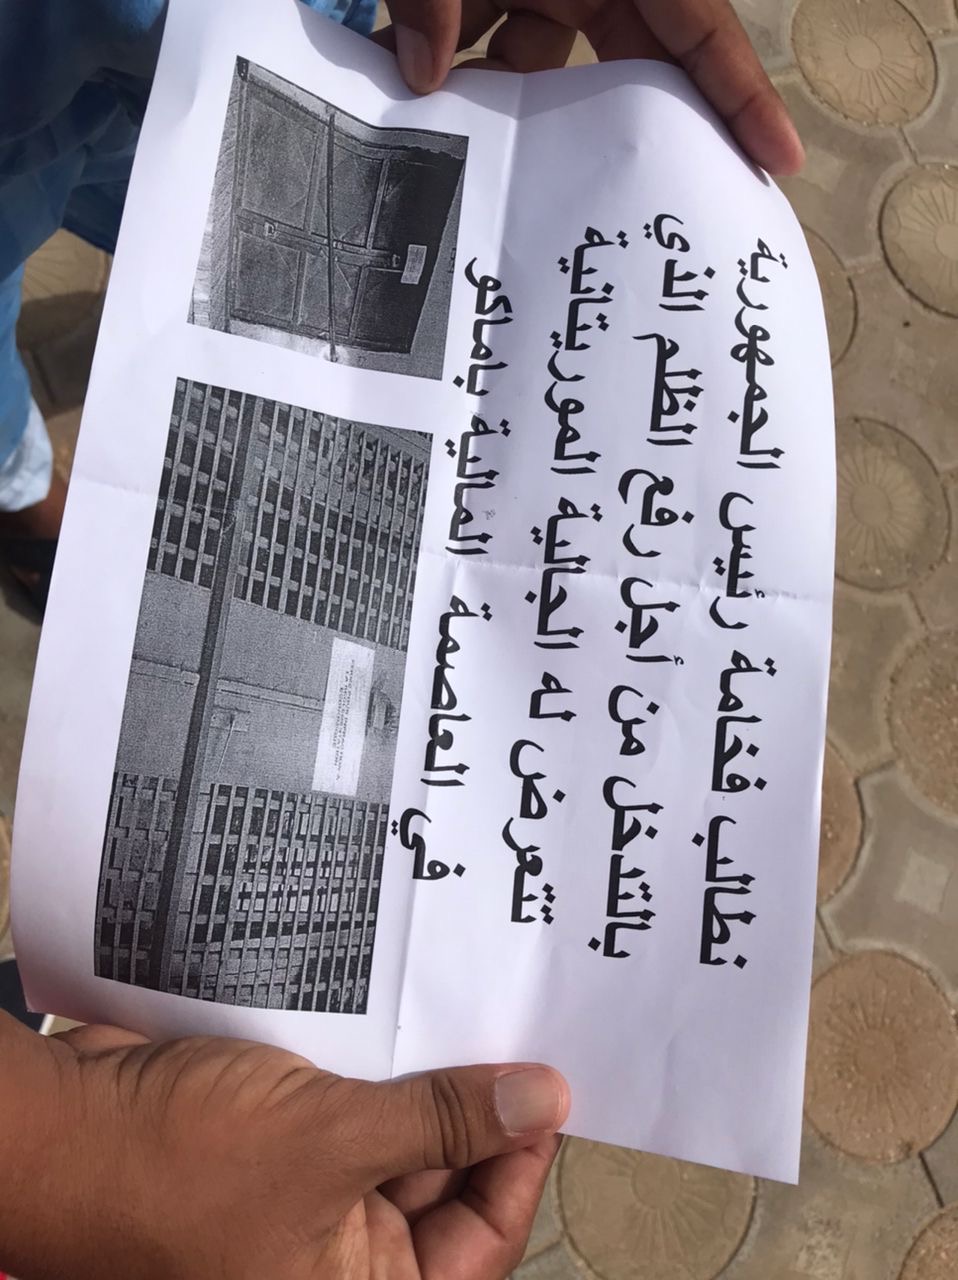 نطالب فخامة رئيس الجمهورية
بالتدخل من أجل رفع الظلم الذي
تتعرض له الجالية الموريتانية
في العاصمة المالية باماكو